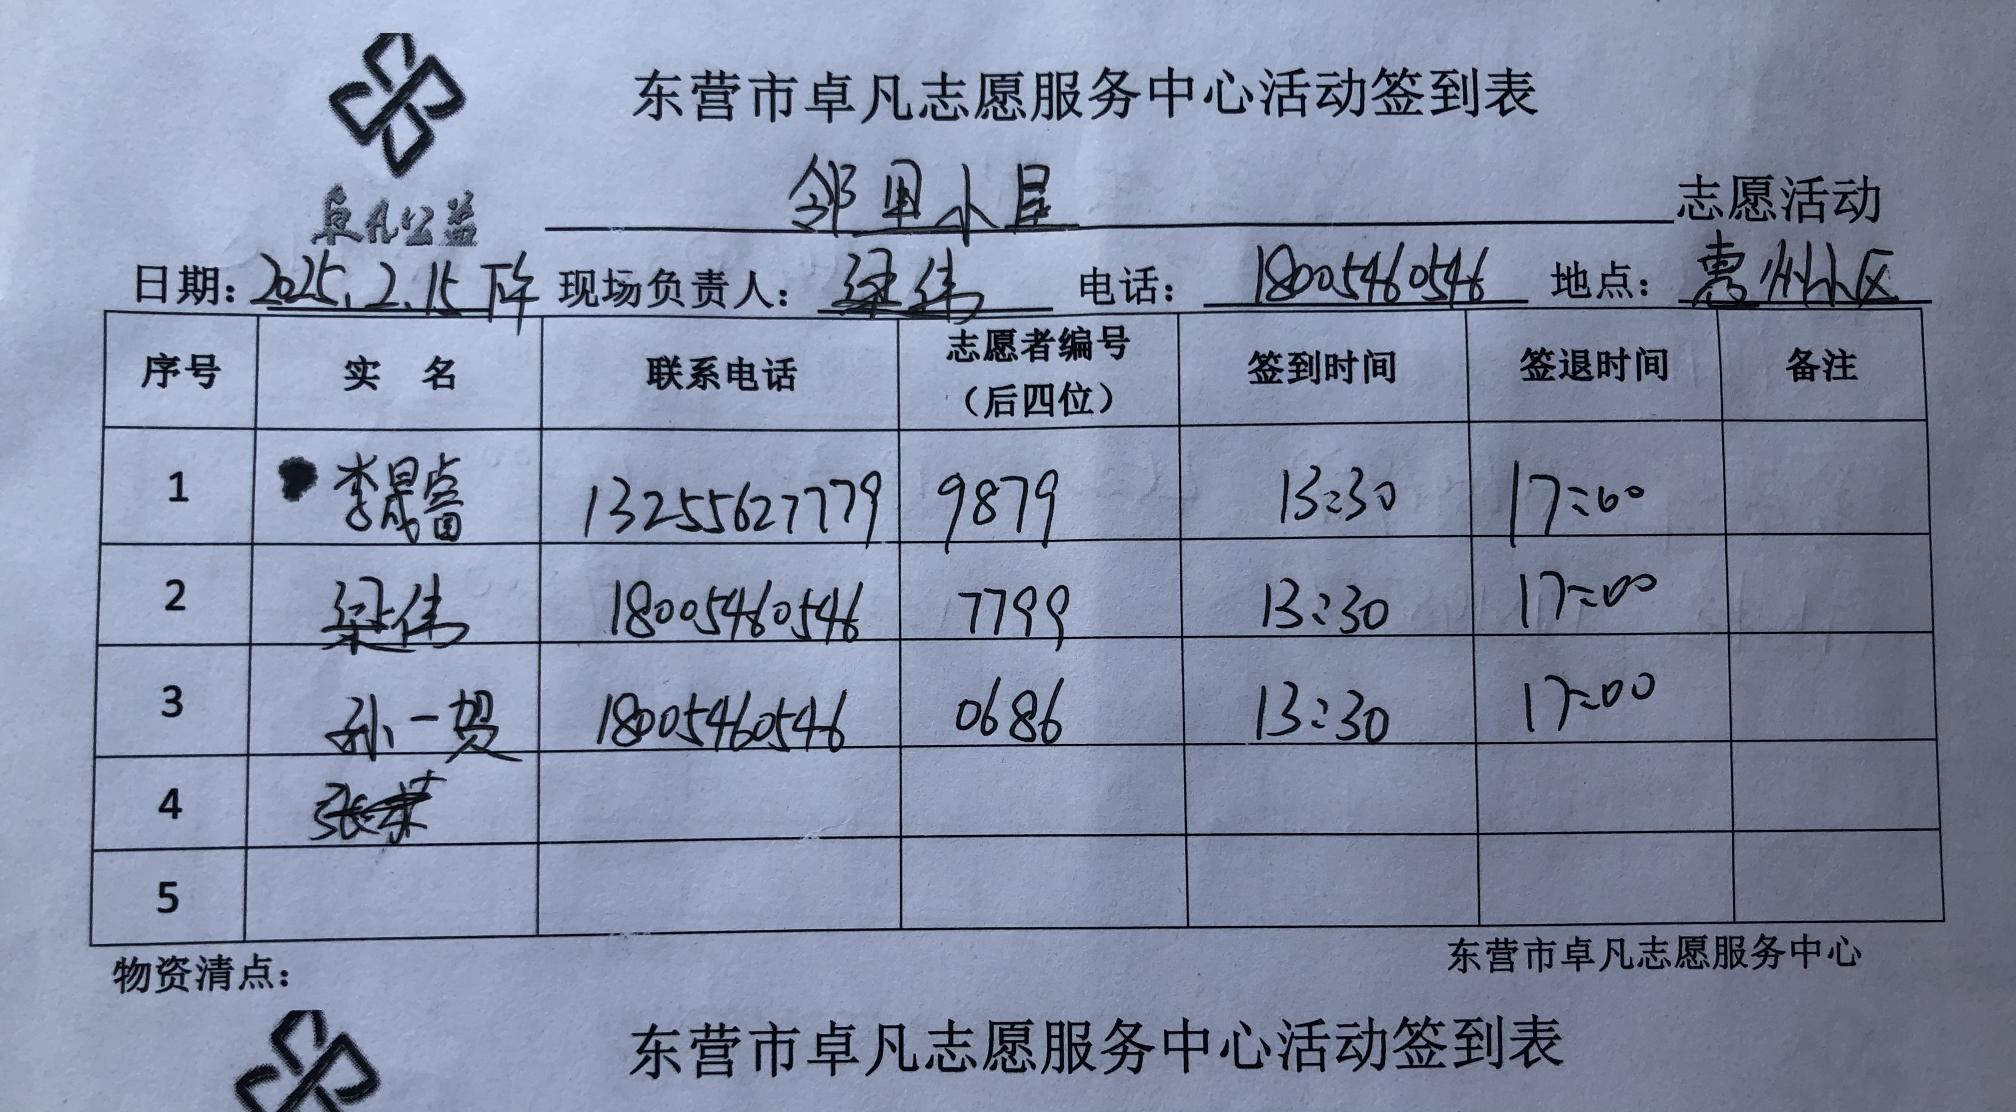 东营市卓凡志愿服务中心活动签到表
卓凡公益
邻里小屋 志愿活动
日期：2025.2.15下午 现场负责人：梁伟 电话：18005460546 地点：惠州小区
序号 实 名 联系电话 志愿者编号（后四位） 签到时间 签退时间 备注
1 李晟睿 13255627779 9879 13:30 17:00
2 梁伟 18005460546 7799 13:30 17:00
3 孙一贺 18005460546 0686 13:30 17:00
4
5
物资清点： 东营市卓凡志愿服务中心
东营市卓凡志愿服务中心活动签到表